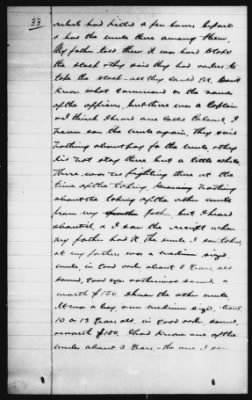 33
rebels had killed a few hours before
& had the mule there among them.
My father told them it was hard to take
the stock & they said they had orders to
take the stock all they could get. Don't
know what command or the names
of the officers, but there was a Captain
and I think I heard one called Colonel. I
never saw the mule again. They said
nothing about pay for the mule, they
did not stay there but a little while
There was no fighting there at the
time of the taking. I know nothing
about the taking of the other mule
from my father but I heard
about it, & I saw the receipt when
my father had it. The mule I saw taken
at my father's was a medium sized
mule, in good order about 8 years old
sound, good eyes & otherwise sound, &
worth $150. I knew the other mule
It was a bay, and medium size, from
10 or 12 years old, in good order sound,
& worth $150. I had known one of the
mules about 3 years - the one I saw